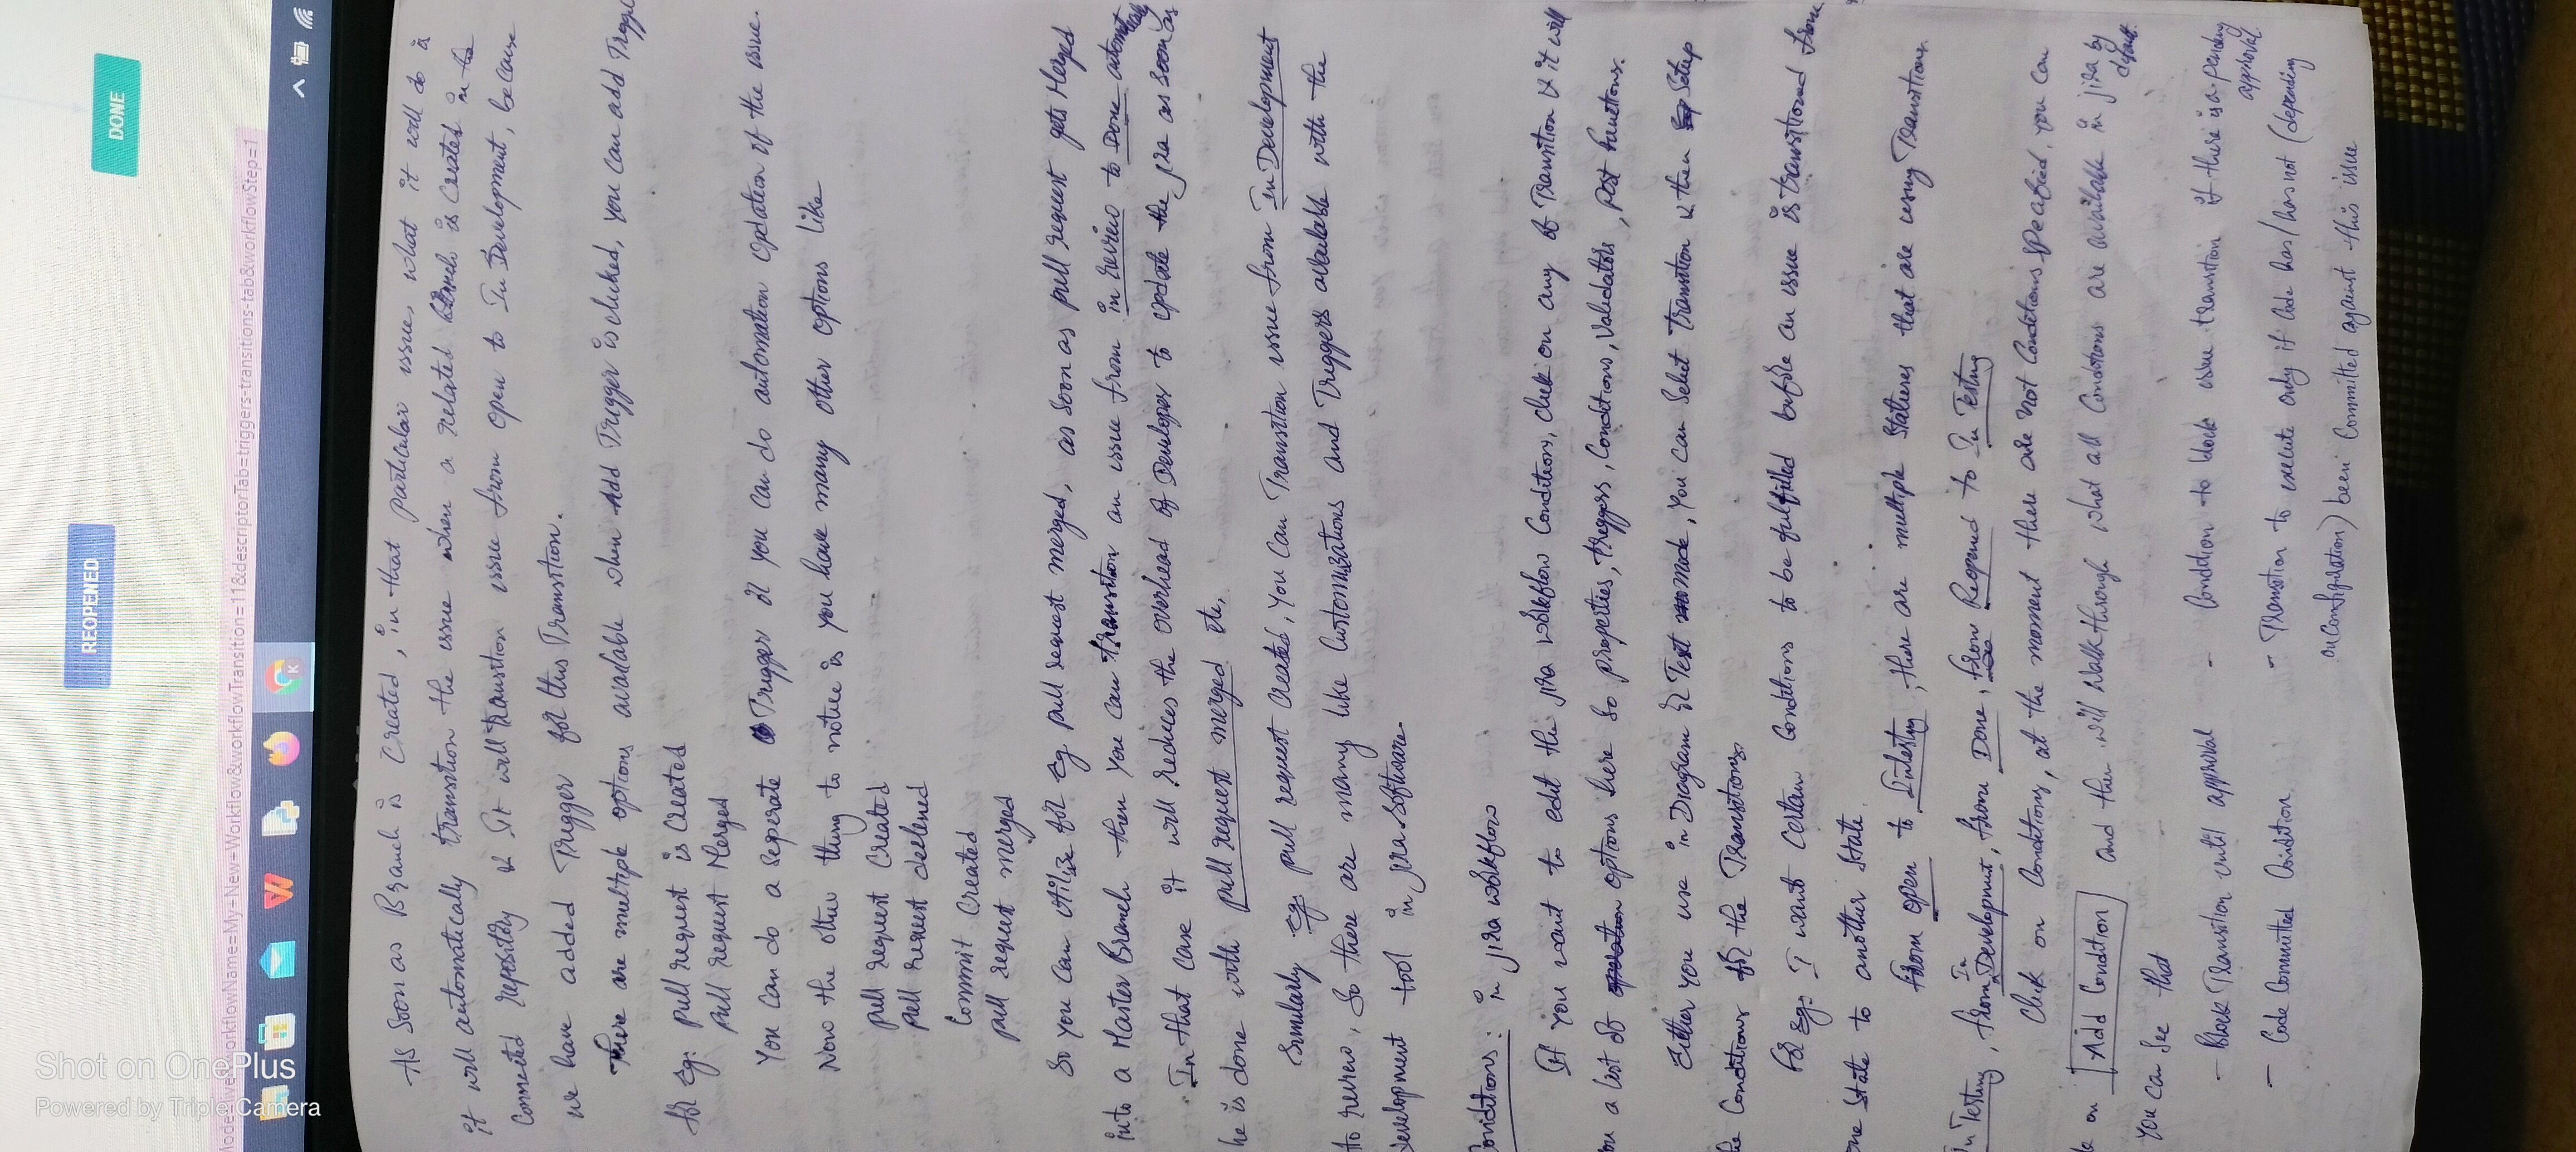 REOPENED
DONE
workflowName=My+New+Workflow&workflowTransition=11&descriptorTab=triggers-transitions-tab&workflowStep=1
Shot on OnePlus
Powered by Triple Camera
As Soon as Branch is Created, in that particular issue, what it will do is
it will automatically transition the issue when a related Branch is Created in the
Connected repository & It will transition issue from open to In Development, because
we have added Trigger for this Transition.
There are multiple options available when Add Trigger is clicked, you can add Trigge
for Eg: pull request is Created
pull request Merged
You can do a seperate Trigger or you can do automation updation of the issue.
Now the other thing to notice is you have many other options like
pull request Created
pull request declined
Commit Created
pull request merged
So you can utilize for Eg pull request merged, as soon as pull request gets Merged
into a Master Branch then you can transition an issue from in review to Done automatically
In that case it will reduces the overhead of Developer to update the jira as soon as
he is done with pull request merged etc,
Similarly eg: pull request Created, You Can Transition issue from In Development
to review, So there are many like Customizations and Triggers available with the
development tool in jira Software.
Conditions: in jira workflow
If you want to edit the jira workflow Conditions, click on any of Transition & it will
ou a list of operation options here So properties, triggers, Conditions, Validators, post functions.
Either you use in Diagram or Text mode, You can Select transition & then Setup
he Conditions for the Transitions.
For eg: I want Certain Conditions to be fulfilled before an issue is transitioned from
one State to another State.
From open to Intesting, there are multiple Statuses that are using Transitions.
In Testing, from In Development, from Done, from Reopened to In Testing
Click on Conditions, at the moment there are not Conditions specified, you can
k on Add Condition and then will Walk through what all Conditions are available in jira by
default.
You can See that
- Block Transition until approval - Condition to block issue transition if there is a pending
approval.
- Code Committed Condition - Transition to execute only if Code has/has not (depending
on Configuration) been Committed against this issue